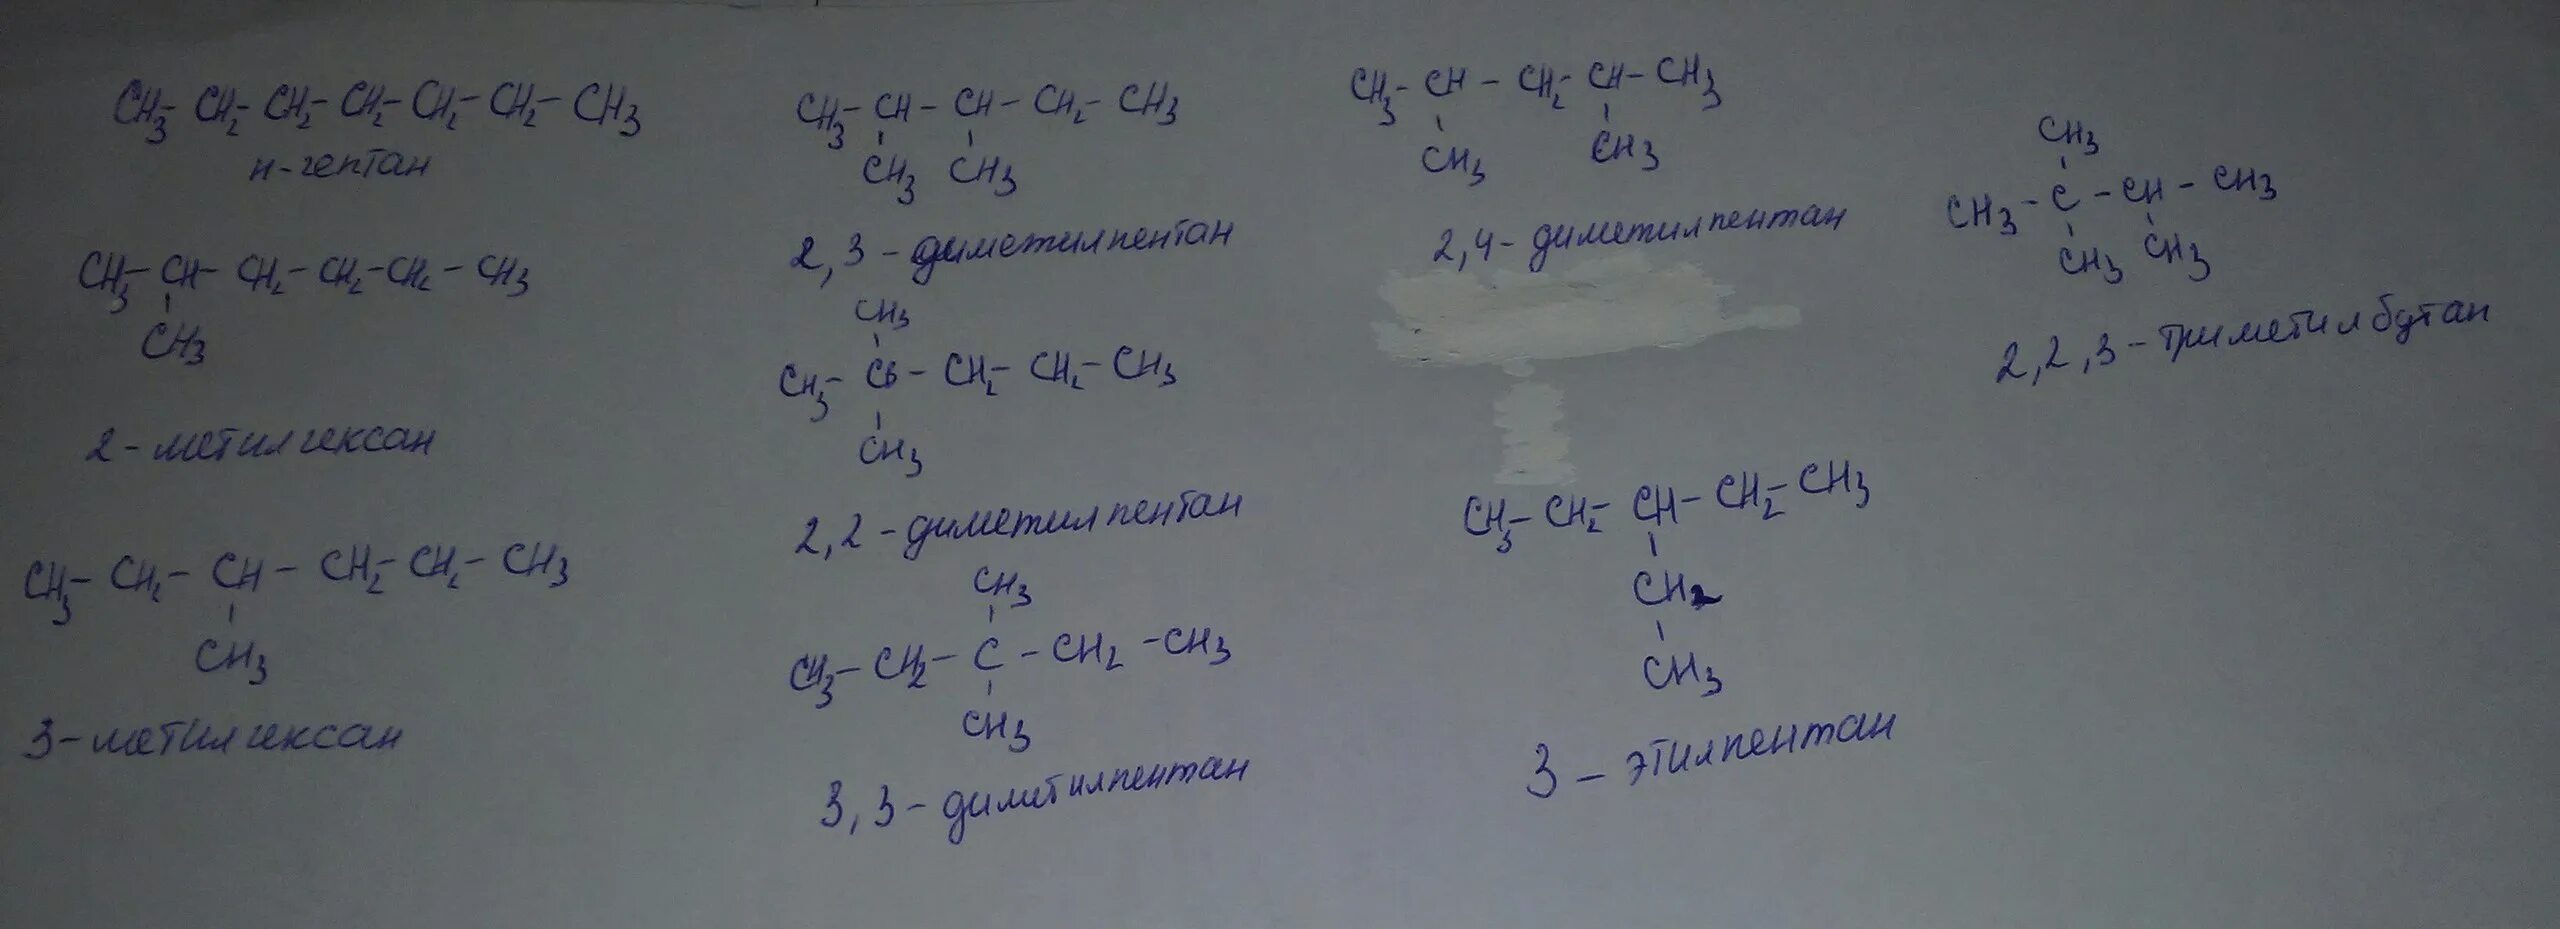 CH3- CH2- CH2- CH2- CH2- CH2- CH3
н-гептан
CH3- CH- CH2- CH2- CH2- CH3
CH3
2-метилгексан
CH3- CH2- CH- CH2- CH2- CH3
CH3
3-метилгексан
CH3- CH- CH- CH2- CH3
CH3 CH3
2,3-диметилпентан
CH3
CH3- C - CH2- CH2- CH3
CH3
2,2-диметилпентан
CH3
CH3- CH2- C- CH2-CH3
CH3
3,3-диметилпентан
CH3- CH - CH2 CH- CH3
CH3 CH3
2,4-диметилпентан
CH3- CH2- CH- CH2- CH3
CH2
CH3
3-этилпентан
CH3
CH3- C - CH- CH3
CH3 CH3
2,2,3-триметилбутан